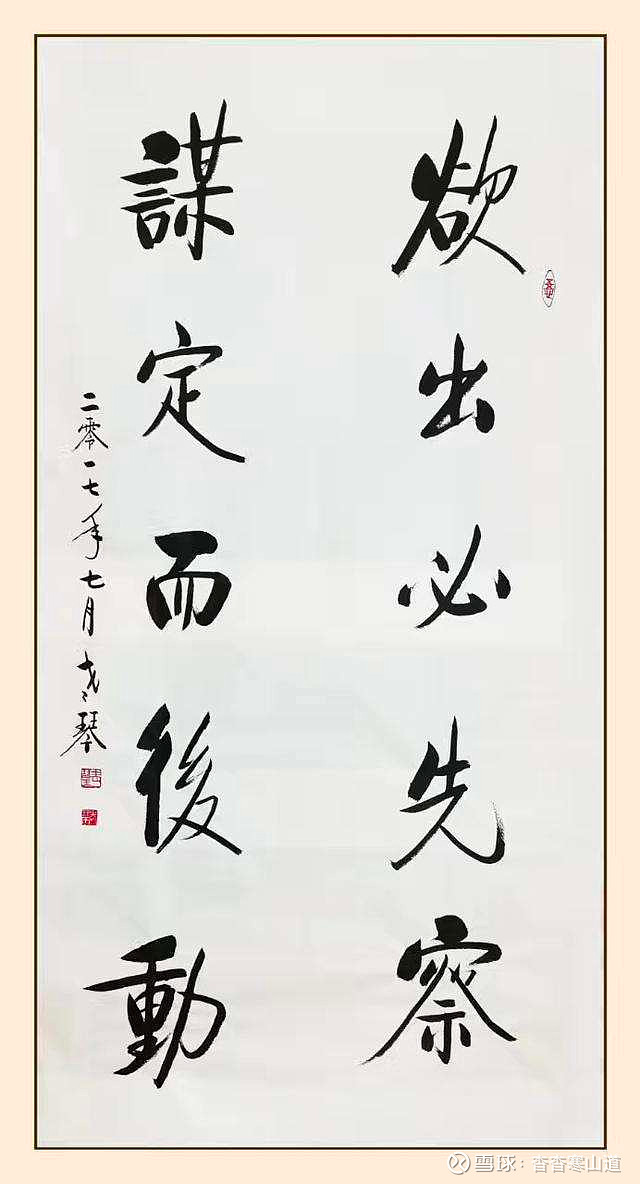 欲出必先察
謀定而後動
二零一七年七月
琴
雪球：香香寒山道